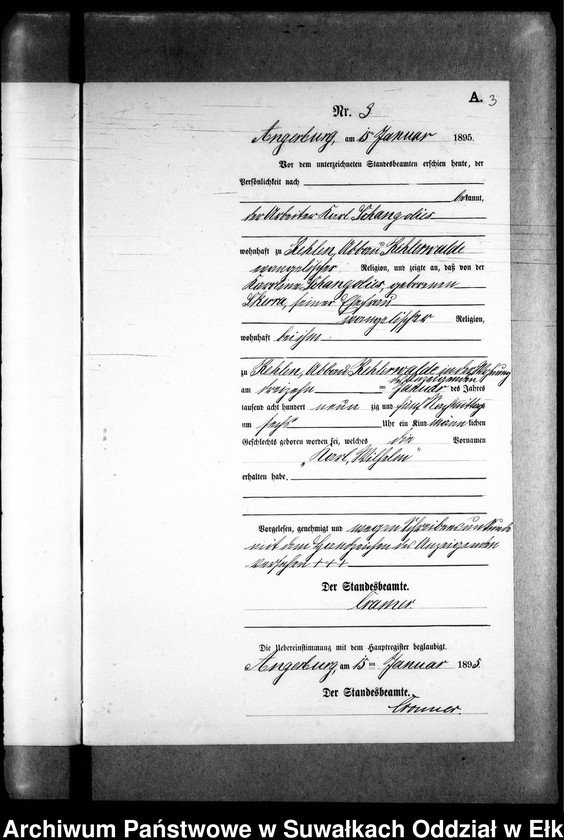 A. 3
Nr. 3
Angerburg, am 15 Januar 1895.
Vor dem unterzeichneten Standesbeamten erschien heute, der
Persönlichkeit nach
bekannt,
der Arbeiter Karl Schangolies
wohnhaft zu Kehlen, Abbau Kehlerwalde
evangelischer Religion, und zeigte an, daß von der
Karoline Schangolies, geborenen
Skerra, seiner Ehefrau
evangelischer Religion,
wohnhaft bei ihm
zu Kehlen, Abbau Kehlerwalde in der Wohnung
des Anzeigenden
am dreizehn ten Januar des Jahres
tausend acht hundert neun zig und fünf Nachmittags
um sechs Uhr ein Kind männlichen
Geschlechts geboren worden sei, welches die Vornamen
„Karl, Wilhelm“
erhalten habe.
Vorgelesen, genehmigt und wegen Schreibensunkunde
mit dem Handzeichen des Anzeigenden
versehen +++
Der Standesbeamte.
Cramer
Die Uebereinstimmung mit dem Hauptregister beglaubigt.
Angerburg, am 15 ten Januar 1895.
Der Standesbeamte.
Cramer.
Archiwum Państwowe w Suwałkach Oddział w Ełk